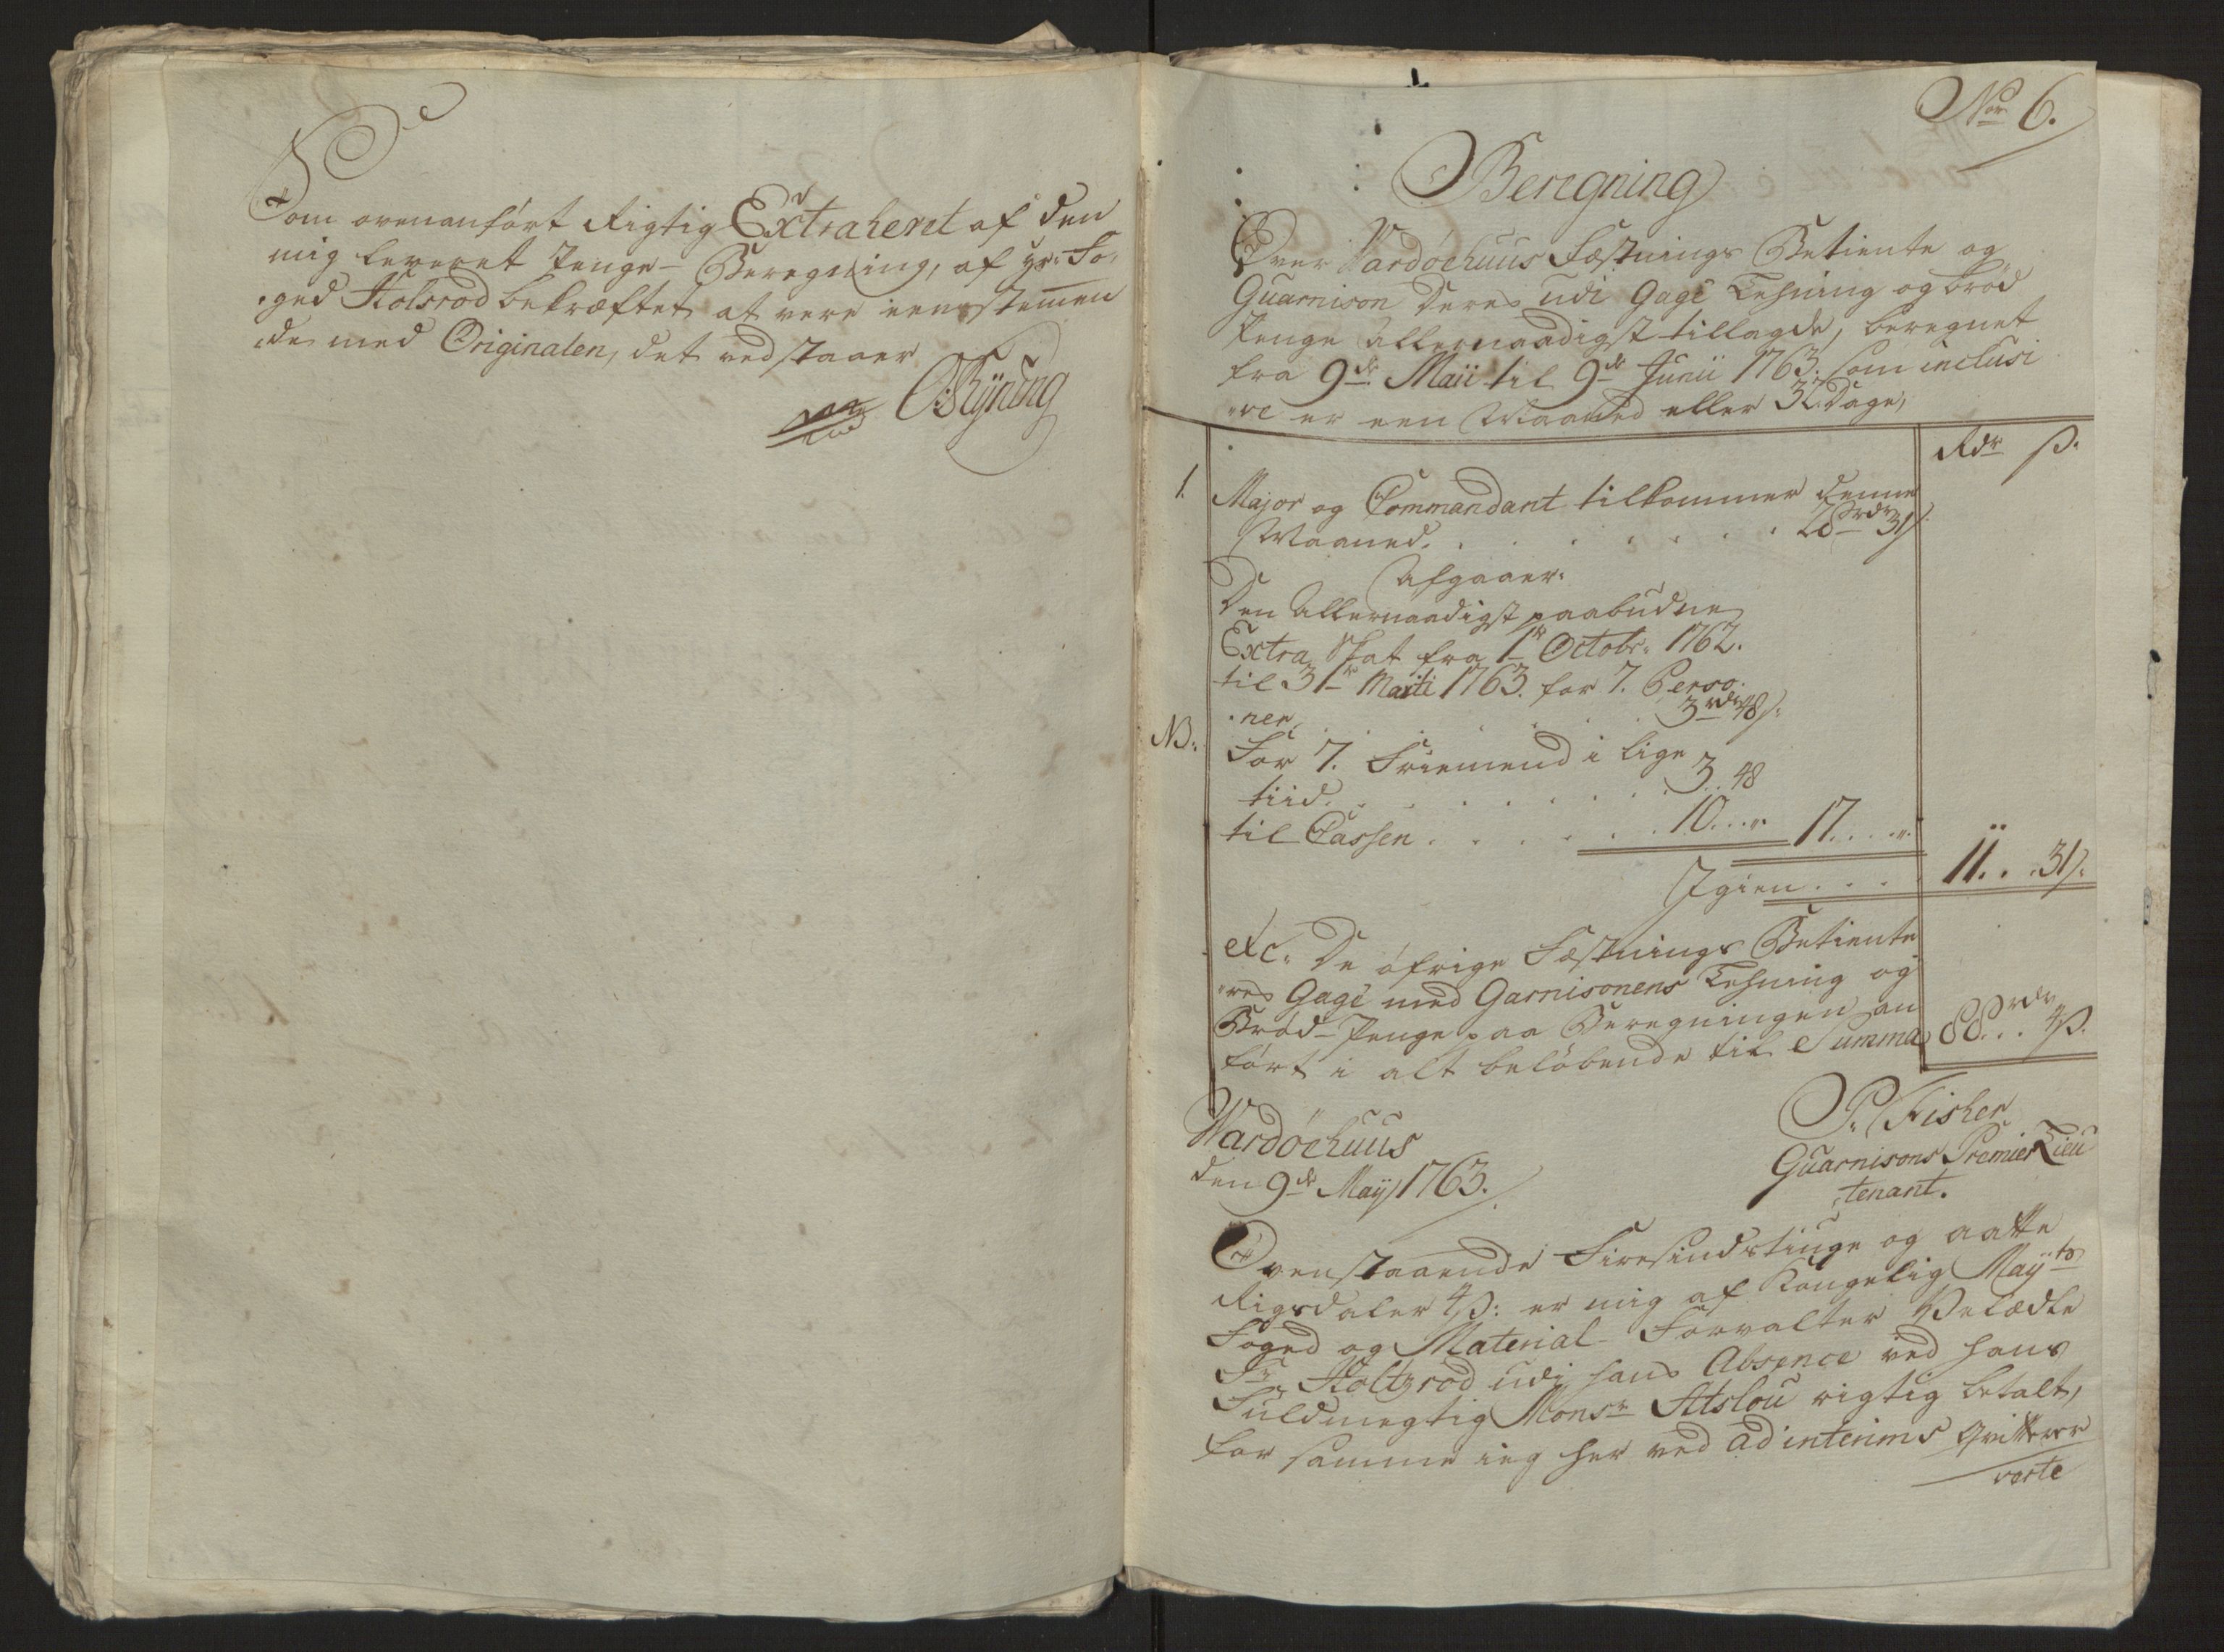 Som ovenanført Rigtig Extraheret af den
mig leveret Penge- Beregning, af Hr: Fo-
ged Holsrod bekræftet at være eenstemen
de med Originalen, det vedstaaer
O: Ryning
Nor 6.
Beregning
Over Vardöehuus Fæstnings Betiente og
Guarnison Deres udi Gage Lehning og brød
Penge allernaadigst tillagde, beregnet
fra 9de Maii til 9de Junii 1763. som inclusi
ve er een Maaned eller 32 Dage,
Rdr ß.
1. Major og Commandant tilkommer denne
Maaned. . . . . . . 28rdr 31ß
Afgaaer.
Den Allernaadigst paabudne
Extra Skat fra 1te Octobr: 1762.
til 31te Marti 1763. for 7. Perso-
ner. . . . . . 3rdr 48ß.
NB. For 7. Friemend i lige
tiid. . . . . . . 3.. 48
til Cassen . . . . . . 10... ". 17. . . . ".
Igien . . . . 11. . . 31ß.
etc. De öfrige Fæstnings Betiente
res Gage med Garnisonens Lehning og
Bröd-Penge paa Beregningen an
fört i alt belöbende til Summa 88rdr... 4ß.
Wardöehuus
den 9de Maij 1763.
P. Fisher
Guarnisons Premier Lieu
tenant.
Ovenstaaende Firesindstiuge og aatte
Rigsdaler 4ß: er mig af Kongelig Maijts
Foged og Material-Forvalter Velædle
Sr Holtzrod udi hans Absence ved hans
Fuldmegtig Monsr Atslou rigtig betalt,
for samme ieg her ved ad interims qvitterer
verte